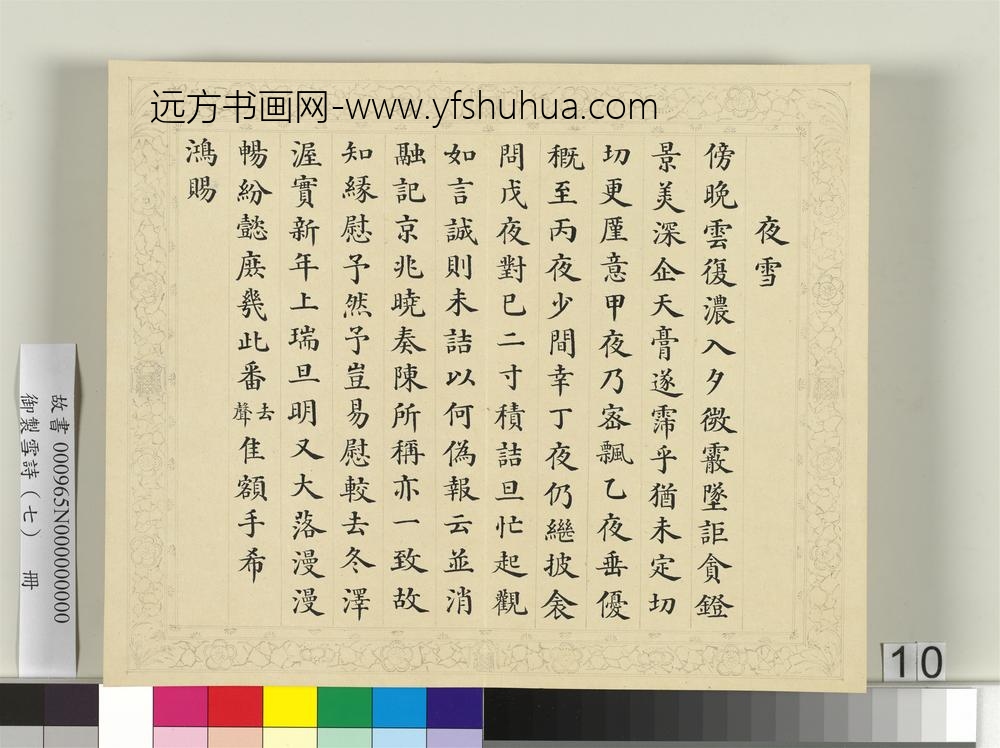 远方书画网-www.yfshuhua.com
夜雪
傍晚雲復濃入夕微霰墜詎貪鐙
景美深企天膏遂霈乎猶未定切
切更厪意甲夜乃密飄乙夜垂優
穊至丙夜少間幸丁夜仍繼披衾
問戊夜對已二寸積詰旦忙起觀
如言誠則未詰以何偽報云並消
融記京兆曉奏陳所稱亦一致故
知緣慰予然予豈易慰較去冬澤
渥實新年上瑞旦明又大落漫漫
暢紛懿庶幾此番去聲隹額手希
鴻賜
故書 000965N000000000
御製雪詩（七） 冊
10